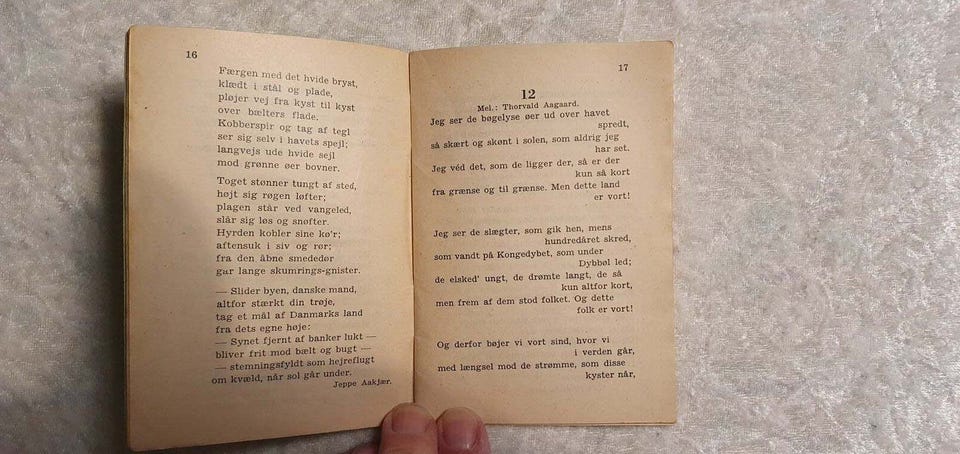 16
Færgen med det hvide bryst,
klædt i stål og plade,
pløjer vej fra kyst til kyst
over bælters flade.
Kobberspir og tag af tegl
ser sig selv i havets spejl;
langvejs ude hvide sejl
mod grønne øer bovner.
Toget stønner tungt af sted,
højt sig røgen løfter;
plagen står ved vangeled,
slår sig løs og snøfter.
Hyrden kobler sine kø'r;
aftensuk i siv og rør;
fra den åbne smededør
gør lange skumrings-gnister.
— Slider byen, danske mand,
altfor stærkt din trøje,
tag et mål af Danmarks land
fra dets egne høje:
— Synet fjernt af banker lukt —
bliver frit mod bælt og bugt —
— stemningsfyldt som hejreflugt
om kvæld, når sol går under.
Jeppe Aakjær.
17
12
Mel.: Thorvald Aagaard.
Jeg ser de bøgelyse øer ud over havet
spredt,
så skært og skønt i solen, som aldrig jeg
har set.
Jeg véd det, som de ligger der, så er der
kun så kort
fra grænse og til grænse. Men dette land
er vort!
Jeg ser de slægter, som gik hen, mens
hundredåret skred,
som vandt på Kongedybet, som under
Dybbøl led;
de elsked' ungt, de drømte langt, de så
kun altfor kort,
men frem af dem stod folket. Og dette
folk er vort!
Og derfor bøjer vi vort sind, hvor vi
i verden går,
med længsel mod de strømme, som disse
kyster når,